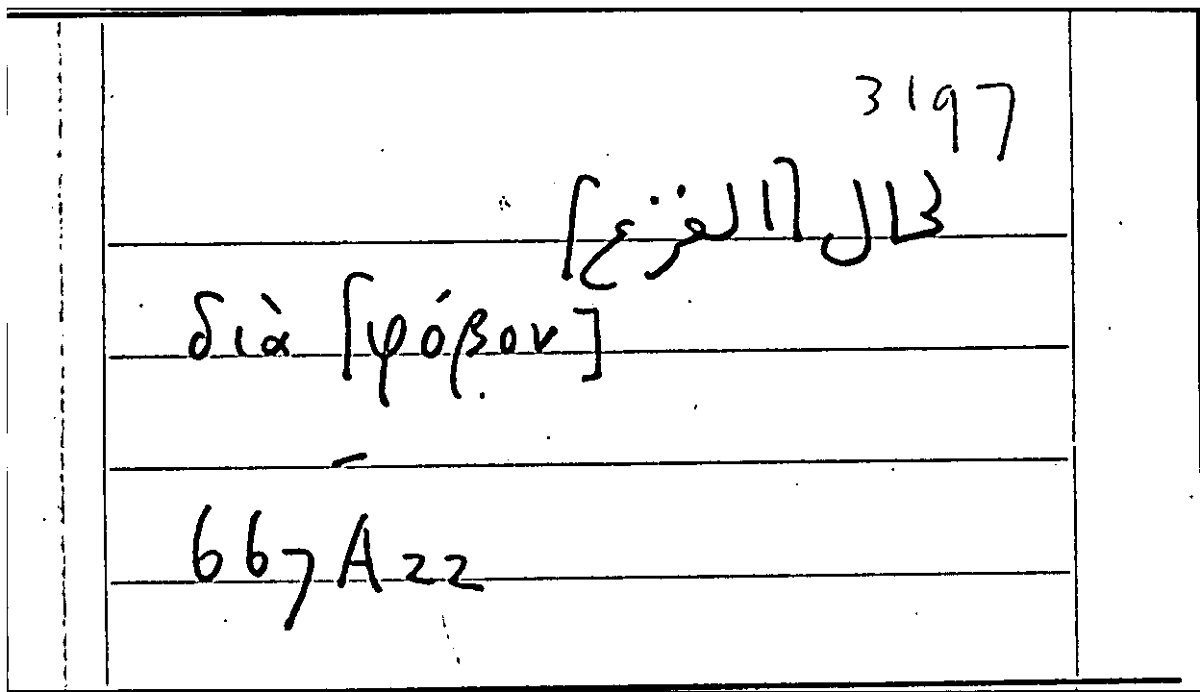 3197
لحال [الفزع]
διὰ [φόβον]
667A22